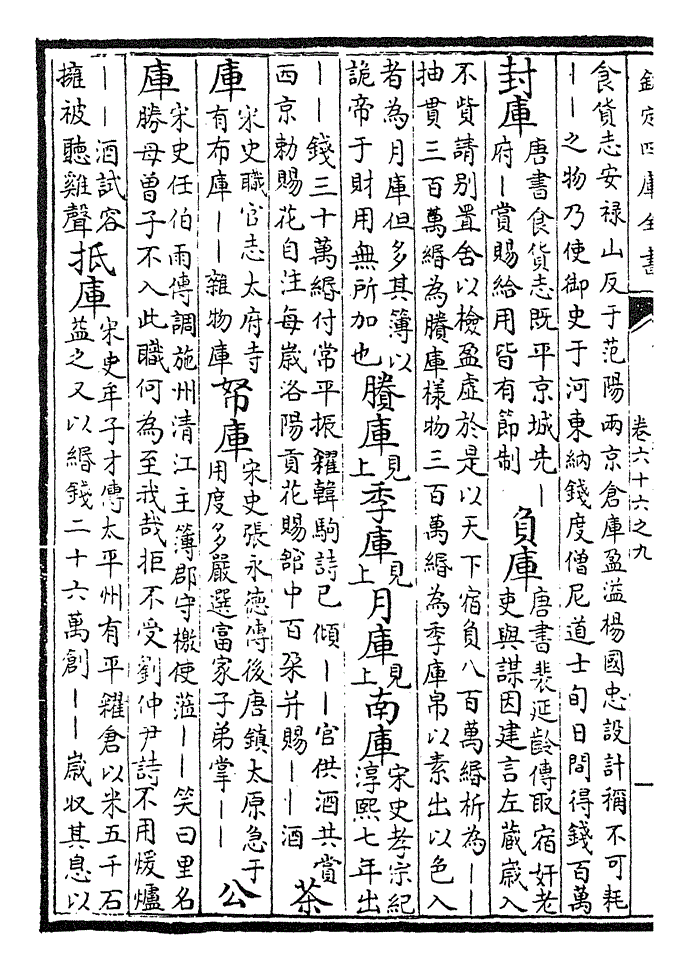 欽定四庫全書 卷六十六之九 一
食貨志安禄山反于范陽兩京倉庫盈溢楊國忠設計稱不可耗
||之物乃使御史于河東納錢度僧尼道士旬日間得錢百萬
封庫 唐書食貨志既平京城先|府|賞賜給用皆有節制 負庫 唐書裴延齡傳取宿奸老吏與謀因建言左蔵嵗入
不貲請别置舍以檢盈虚於是以天下宿負八百萬緡析為||
抽貫三百萬緡為賸庫樣物三百萬緡為季庫帛以素出以色入
者為月庫但多其簿以詭帝于財用無所加也 賸庫 見上 季庫 見上 月庫 見上 南庫 宋史孝宗紀淳熙七年出
||錢三十萬緡付常平振糴韓駒詩已傾||官供酒共賞
西京勅賜花自注每嵗洛陽貢花賜館中百朶并賜||酒 茶
庫 宋史職官志太府寺有布庫||雜物庫 帑庫 宋史張永德傳後唐鎮太原急于用度多嚴選富家子弟掌|| 公
庫 宋史任伯雨傳調施州清江主簿郡守檄使涖||笑曰里名
勝母曾子不入此職何為至我哉拒不受劉仲尹詩不用煖爐
||酒試容擁被聽雞聲 抵庫 宋史牟子才傳太平州有平糴倉以米五千石益之又以緡錢二十六萬創||嵗収其息以